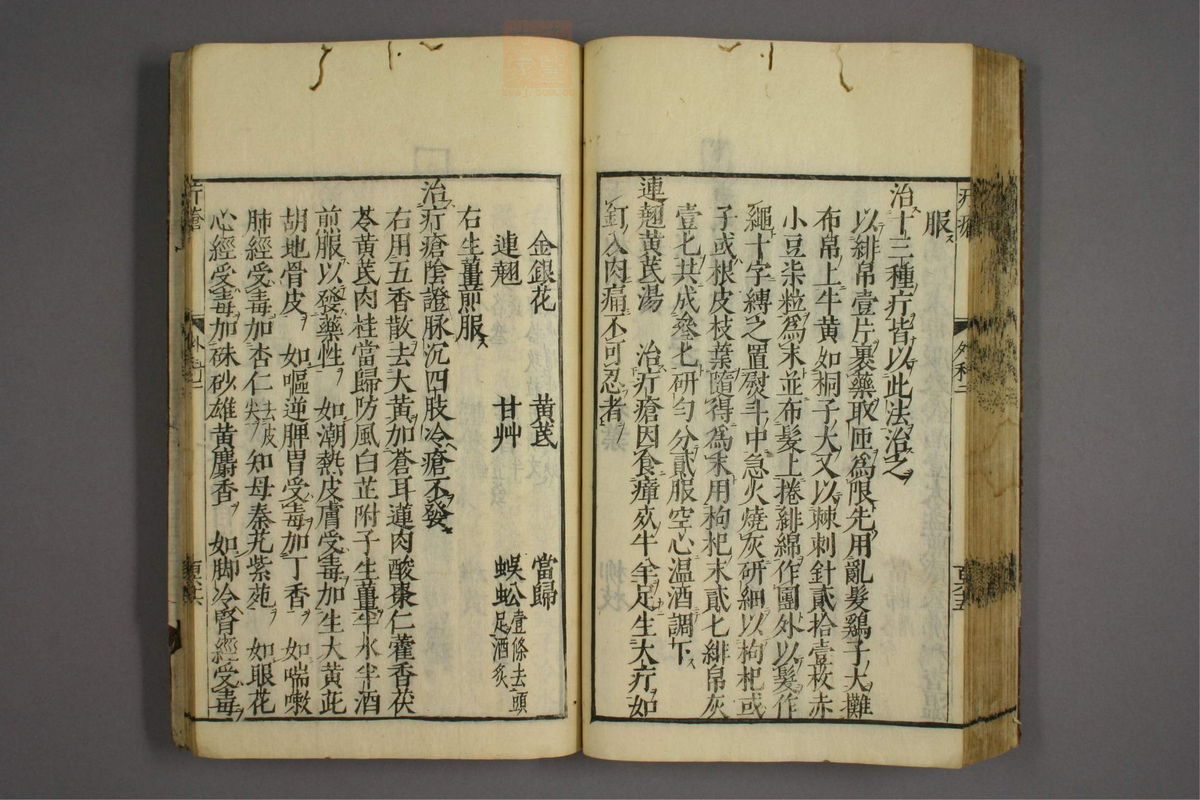 服
治十三種疔皆以此法治之
以緋帛壹片裹藥取匝爲限先用亂髮鷄子大攤
布帛上牛黃如桐子大又以棘刺針貳拾壹枚赤
小豆柒粒爲末並布髮上捲緋綿作團外以髮作
繩十字縛之置熨斗中急火燒灰研細以枸杞或
子或根皮枝葉隨得爲末用枸杞末貳匕緋帛灰
壹匕共成叄匕研勻分貳服空心温酒調下
連翹黃芪湯 治疔瘡因食瘴死牛羊足生大疔如
釘入肉痛不可忍者
疔瘡
外科二
金銀花 黃芪 當歸
連翹 甘艸 蜈蚣壹條去頭足酒炙
右生薑煎服
治疔瘡陰證脉沉四肢冷瘡不發
右用五香散去大黃加蒼耳蓮肉酸棗仁藿香茯
苓黃芪肉桂當歸防風白芷附子生薑半水半酒
煎服以發藥性 如潮熱皮膚受毒加生大黃疵
胡地骨皮 如嘔逆脾胃受毒加丁香 如喘嗽
肺經受毒加杏仁去皮尖知母秦艽紫菀 如眼花
心經受毒加硃砂雄黃麝香 如脚冷腎經受毒